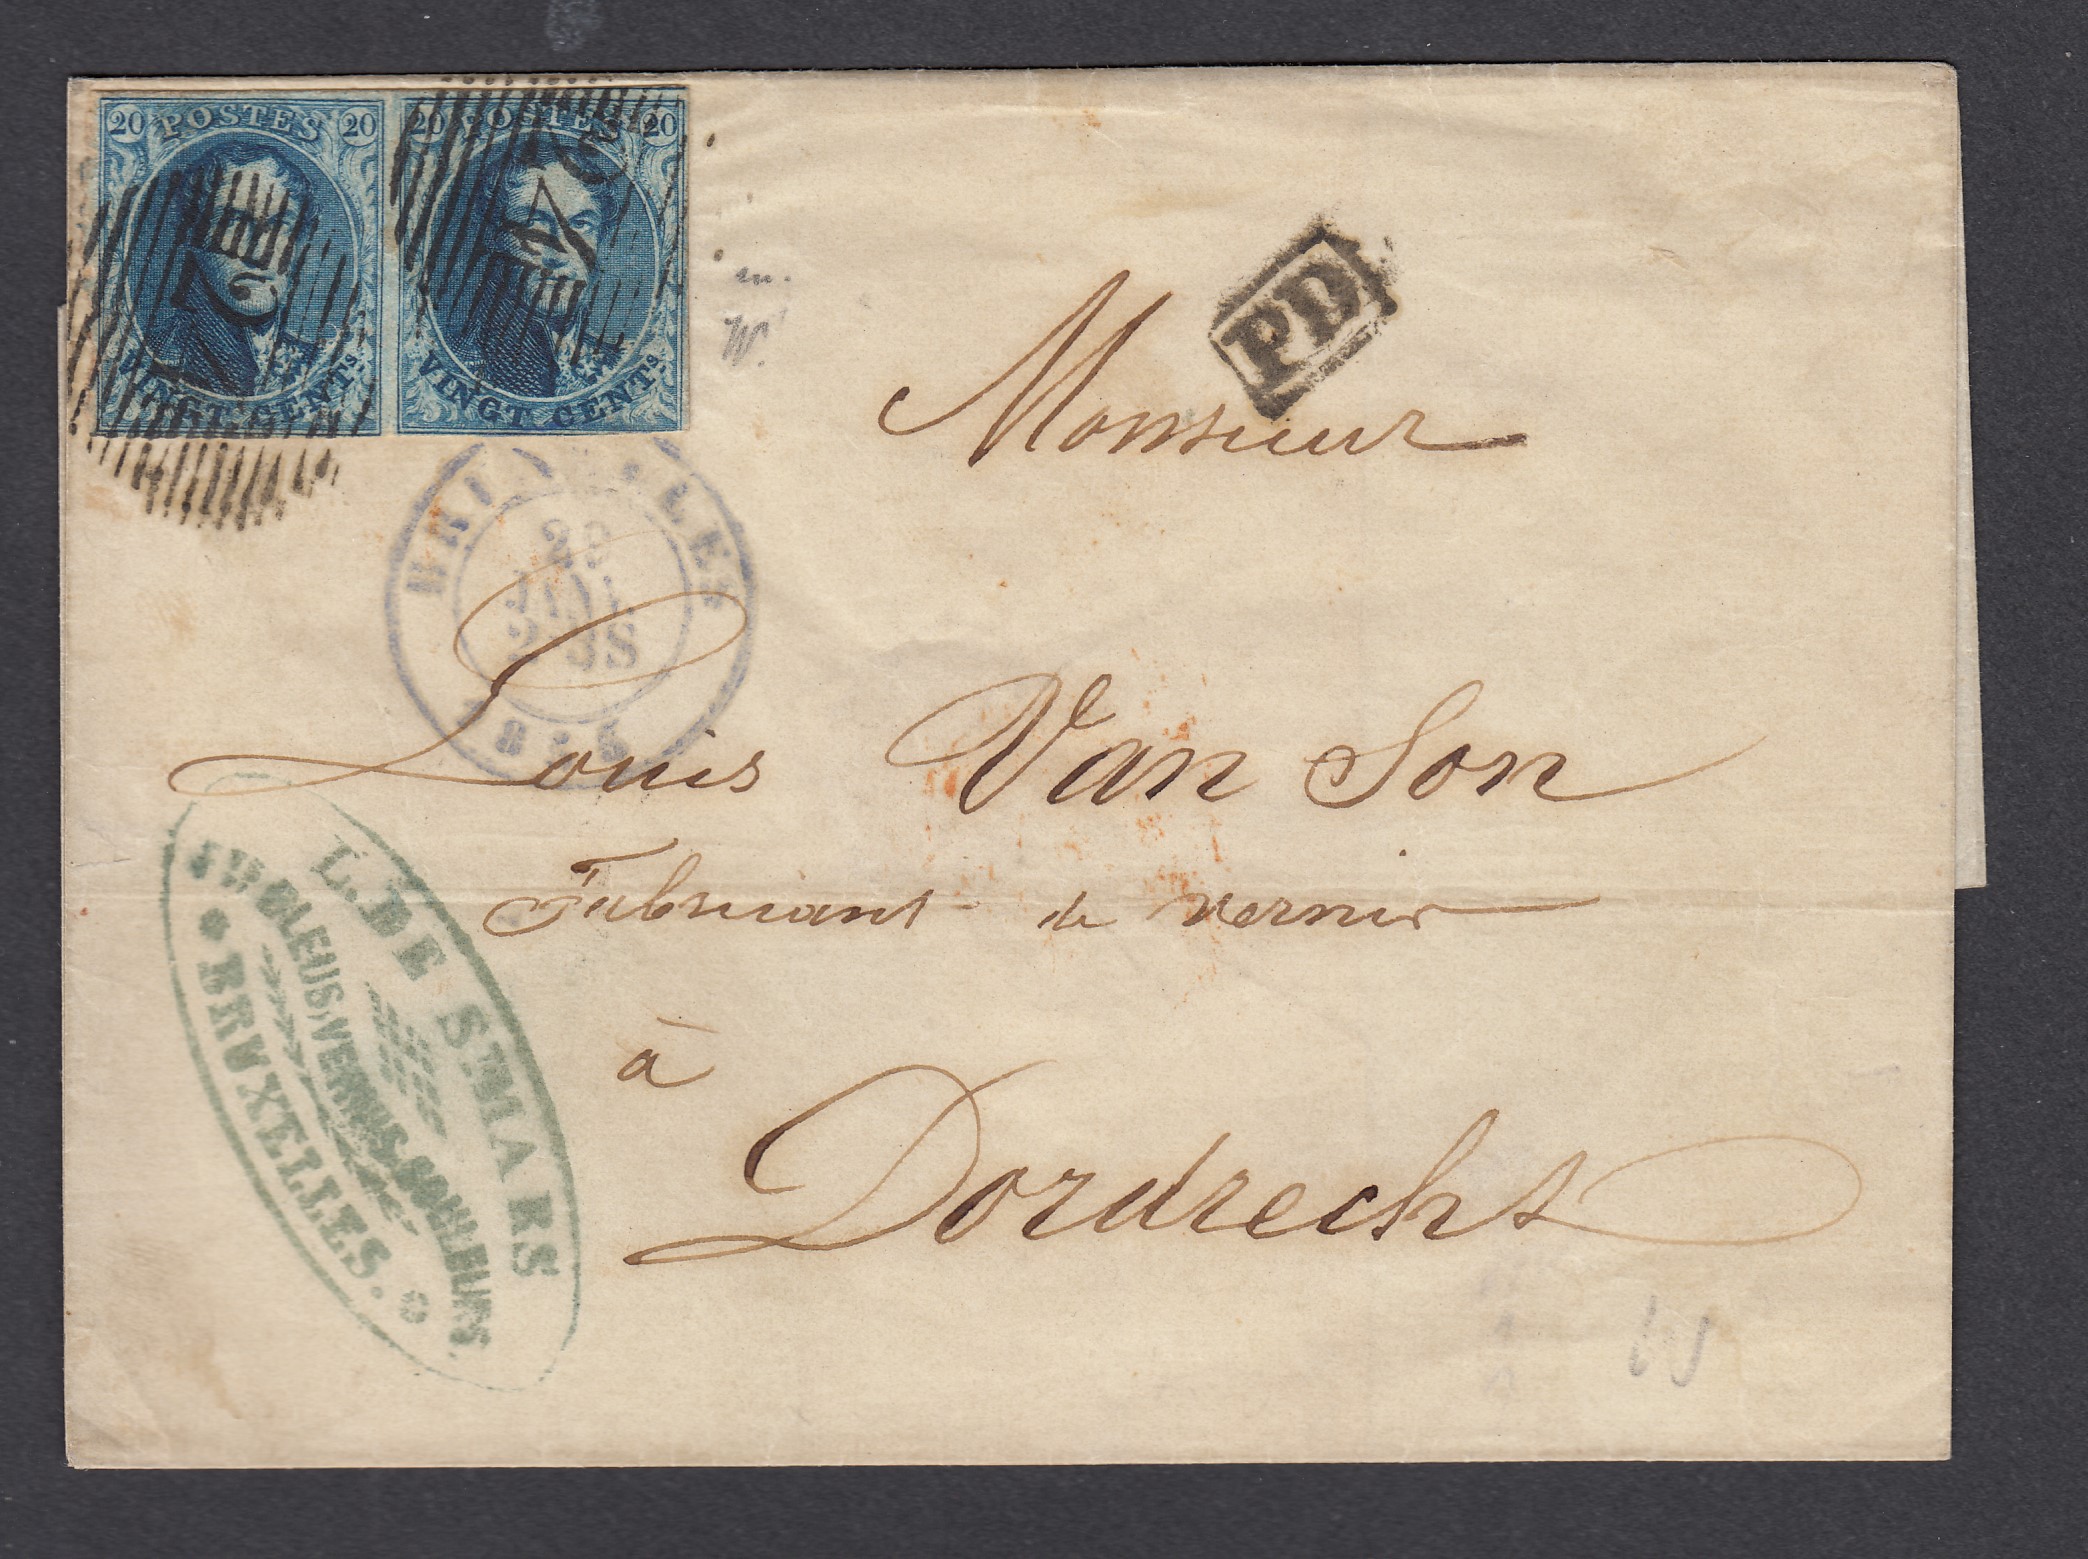 20 POSTES 20
VINGT CENTS
20 POSTES 20
VINGT CENTS
24
24
PD
Monsieur
29
8S
Louis Van Son
Fabricant de vernis
à
Dordrecht
L. DE ST MARS
COULEURS
BRUXELLES.